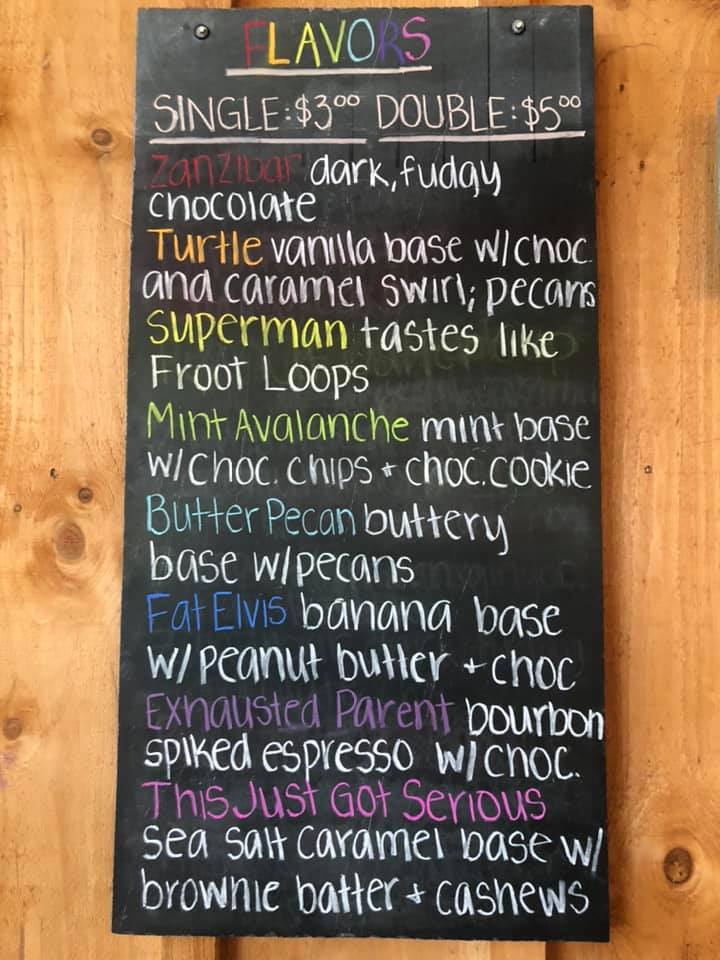 FLAVORS
SINGLE: $3.00 DOUBLE: $5.00
Zanzibar dark, fudgy
chocolate
Turtle vanilla base w/choc
and caramel swirl; pecans
Superman tastes like
Froot Loops
Mint Avalanche mint base
w/choc. chips + choc. cookie
Butter Pecan buttery
base w/pecans
Fat Elvis banana base
w/ peanut butter + choc
Exhausted Parent bourbon
spiked espresso w/choc.
This Just Got Serious
sea salt caramel base w/
brownie batter + cashews